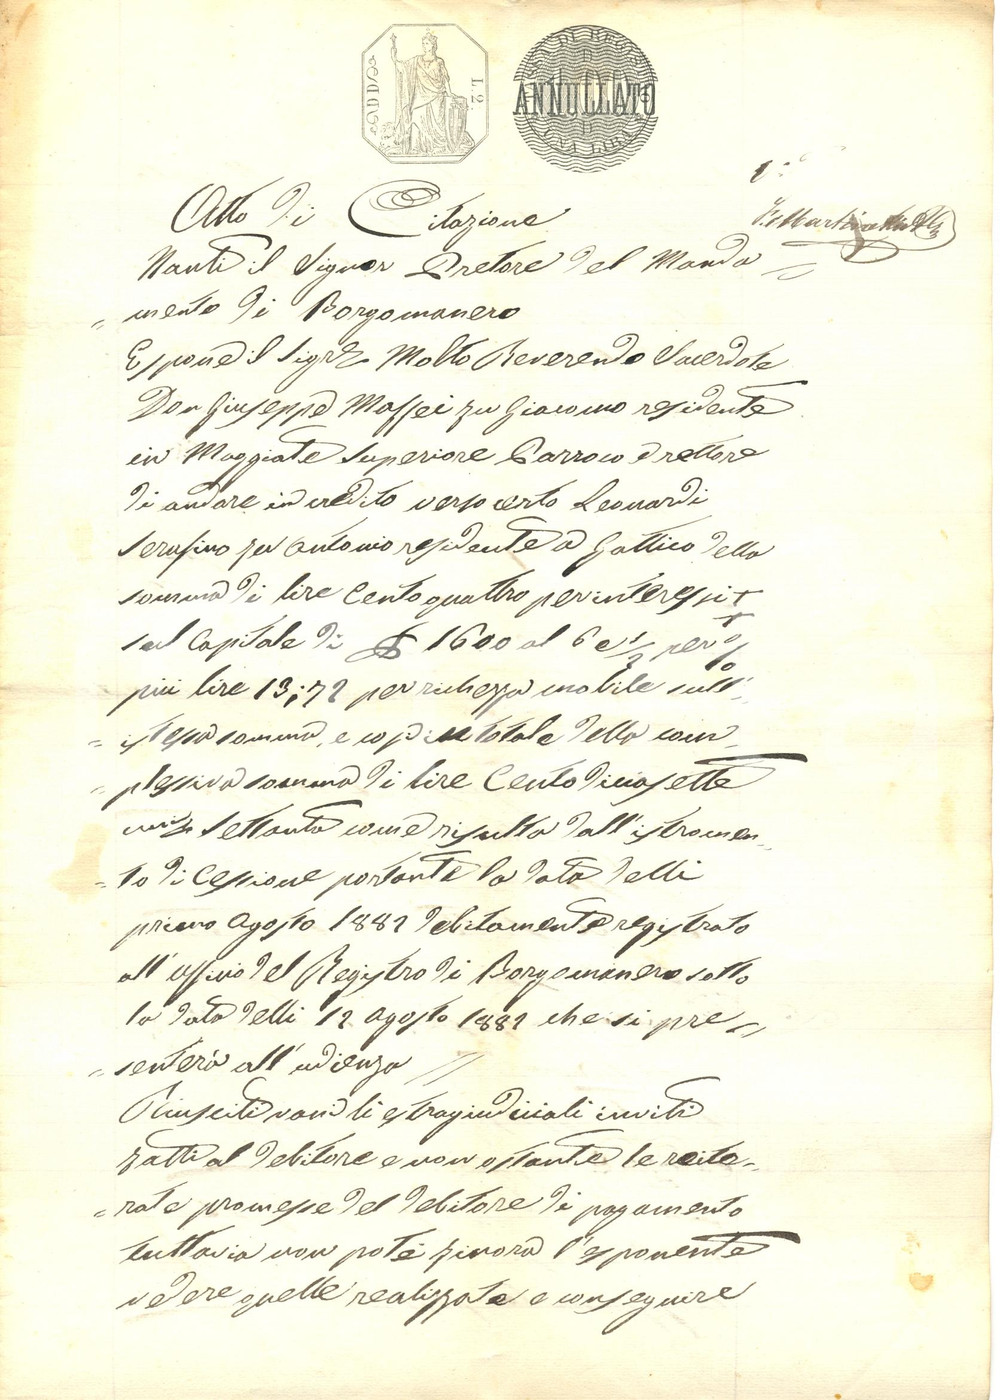 L. 2.
ANNULLATO
Atto di Citazione
Nanti il Signor Pretore del Manda
= mento di Borgomanero
Espone il Sigr Molto Reverendo Sacerdote
Don Giuseppe Maffei fu Giacomo residente
in Maggiate Superiore Parroco e rettore
di andare in credito verso certo Leonardi
Serafino fu Antonio residente a Gattico della
somma di lire Cento quattro per interessi
sul Capitale di 1600 al 6 e 1/2 per %
più lire 13,72 per ricchezza mobile sull'
= istessa somma, e così in totale della com
= plessiva somma di lire Cento diciasette
cent settanta come risulta dall'istromen=
= to di Cessione portante la data delli
primo Agosto 1882 debitamente registrato
all'ufficio del Registro di Borgomanero sotto
la data delli 12 Agosto 1882 che si pre=
= senterà all'udienza
Riusciti vani li estragiudiciali inviti
fatti al debitore e non ostante le reite=
= rate promesse del debitore di pagamento
tuttavia non potè finora l'esponente
vedere quelle realizzate e conseguire